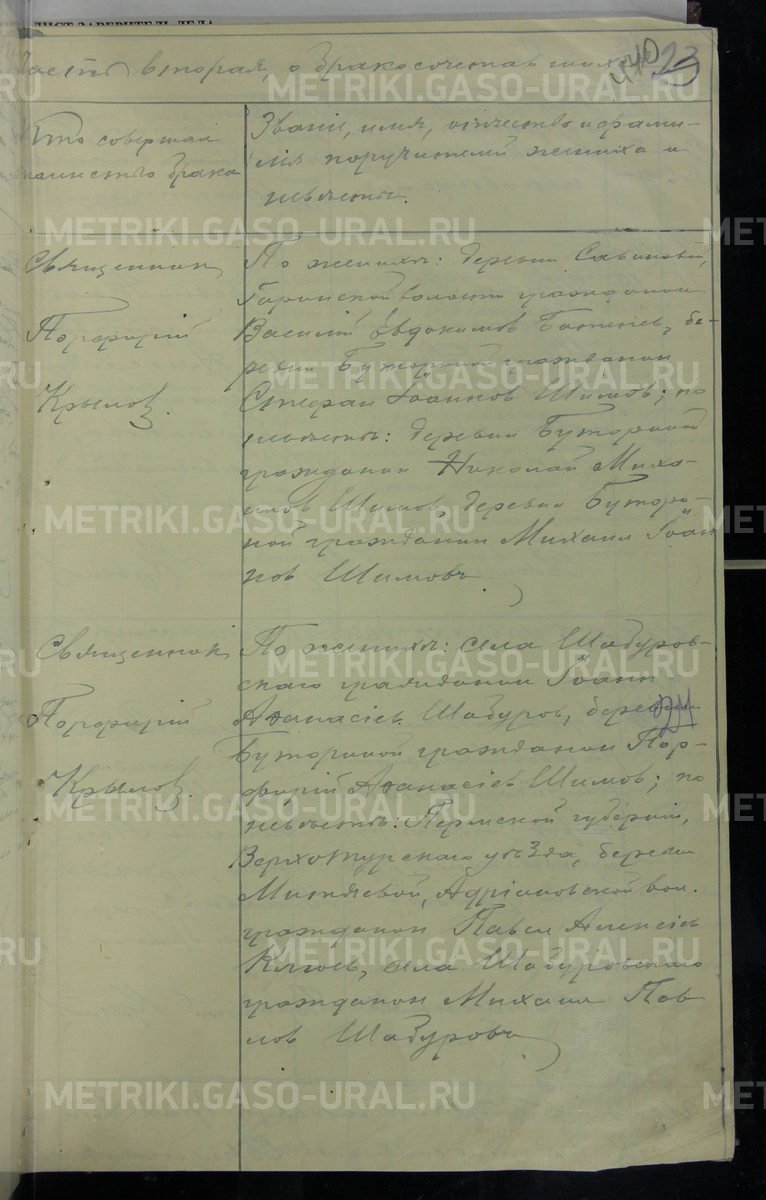 ЛИСТ-ЗАВЕРИТЕЛЬ ДЕЛА
Часть вторая, о бракосочетавшихся
440 23
Кто совершал
таинство брака
Званіе, имя, отчество и фами-
лія поручителей жениха и
невѣсты.
Священник
Порфирій
Крылов.
По женихѣ: деревни Савиновой,
Гаринской волости гражданин
Василій Евдокимов , де-
ревни Буториной гражданин
Стефан Іоаннов Шимов; по
невѣстѣ: деревни Буториной
гражданин Николай Миха-
илов Шимов, деревни Бутори-
ной гражданин Михаил Іоан
нов Шимовъ
Священник
Порфирій
Крылов.
По женихѣ: села Шабуров-
скаго гражданин Іоанн
Афанасіев Шабуров, деревни
Буториной гражданин Пор-
фирій Афанасіев Шимов; по
невѣстѣ: Пермской губерніи,
Верхотурскаго уѣзда, деревни
Митяевой, вол.
гражданин Павел Алексіев
Клюев, села Шабуровскаго
гражданин Михаил Пав
лов Шабуровъ
METRIKI.GASO-URAL.RU